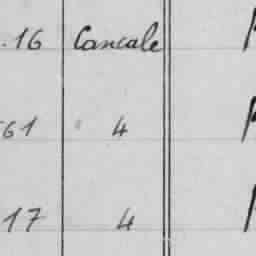 .16 Cancale
61 4
17 4